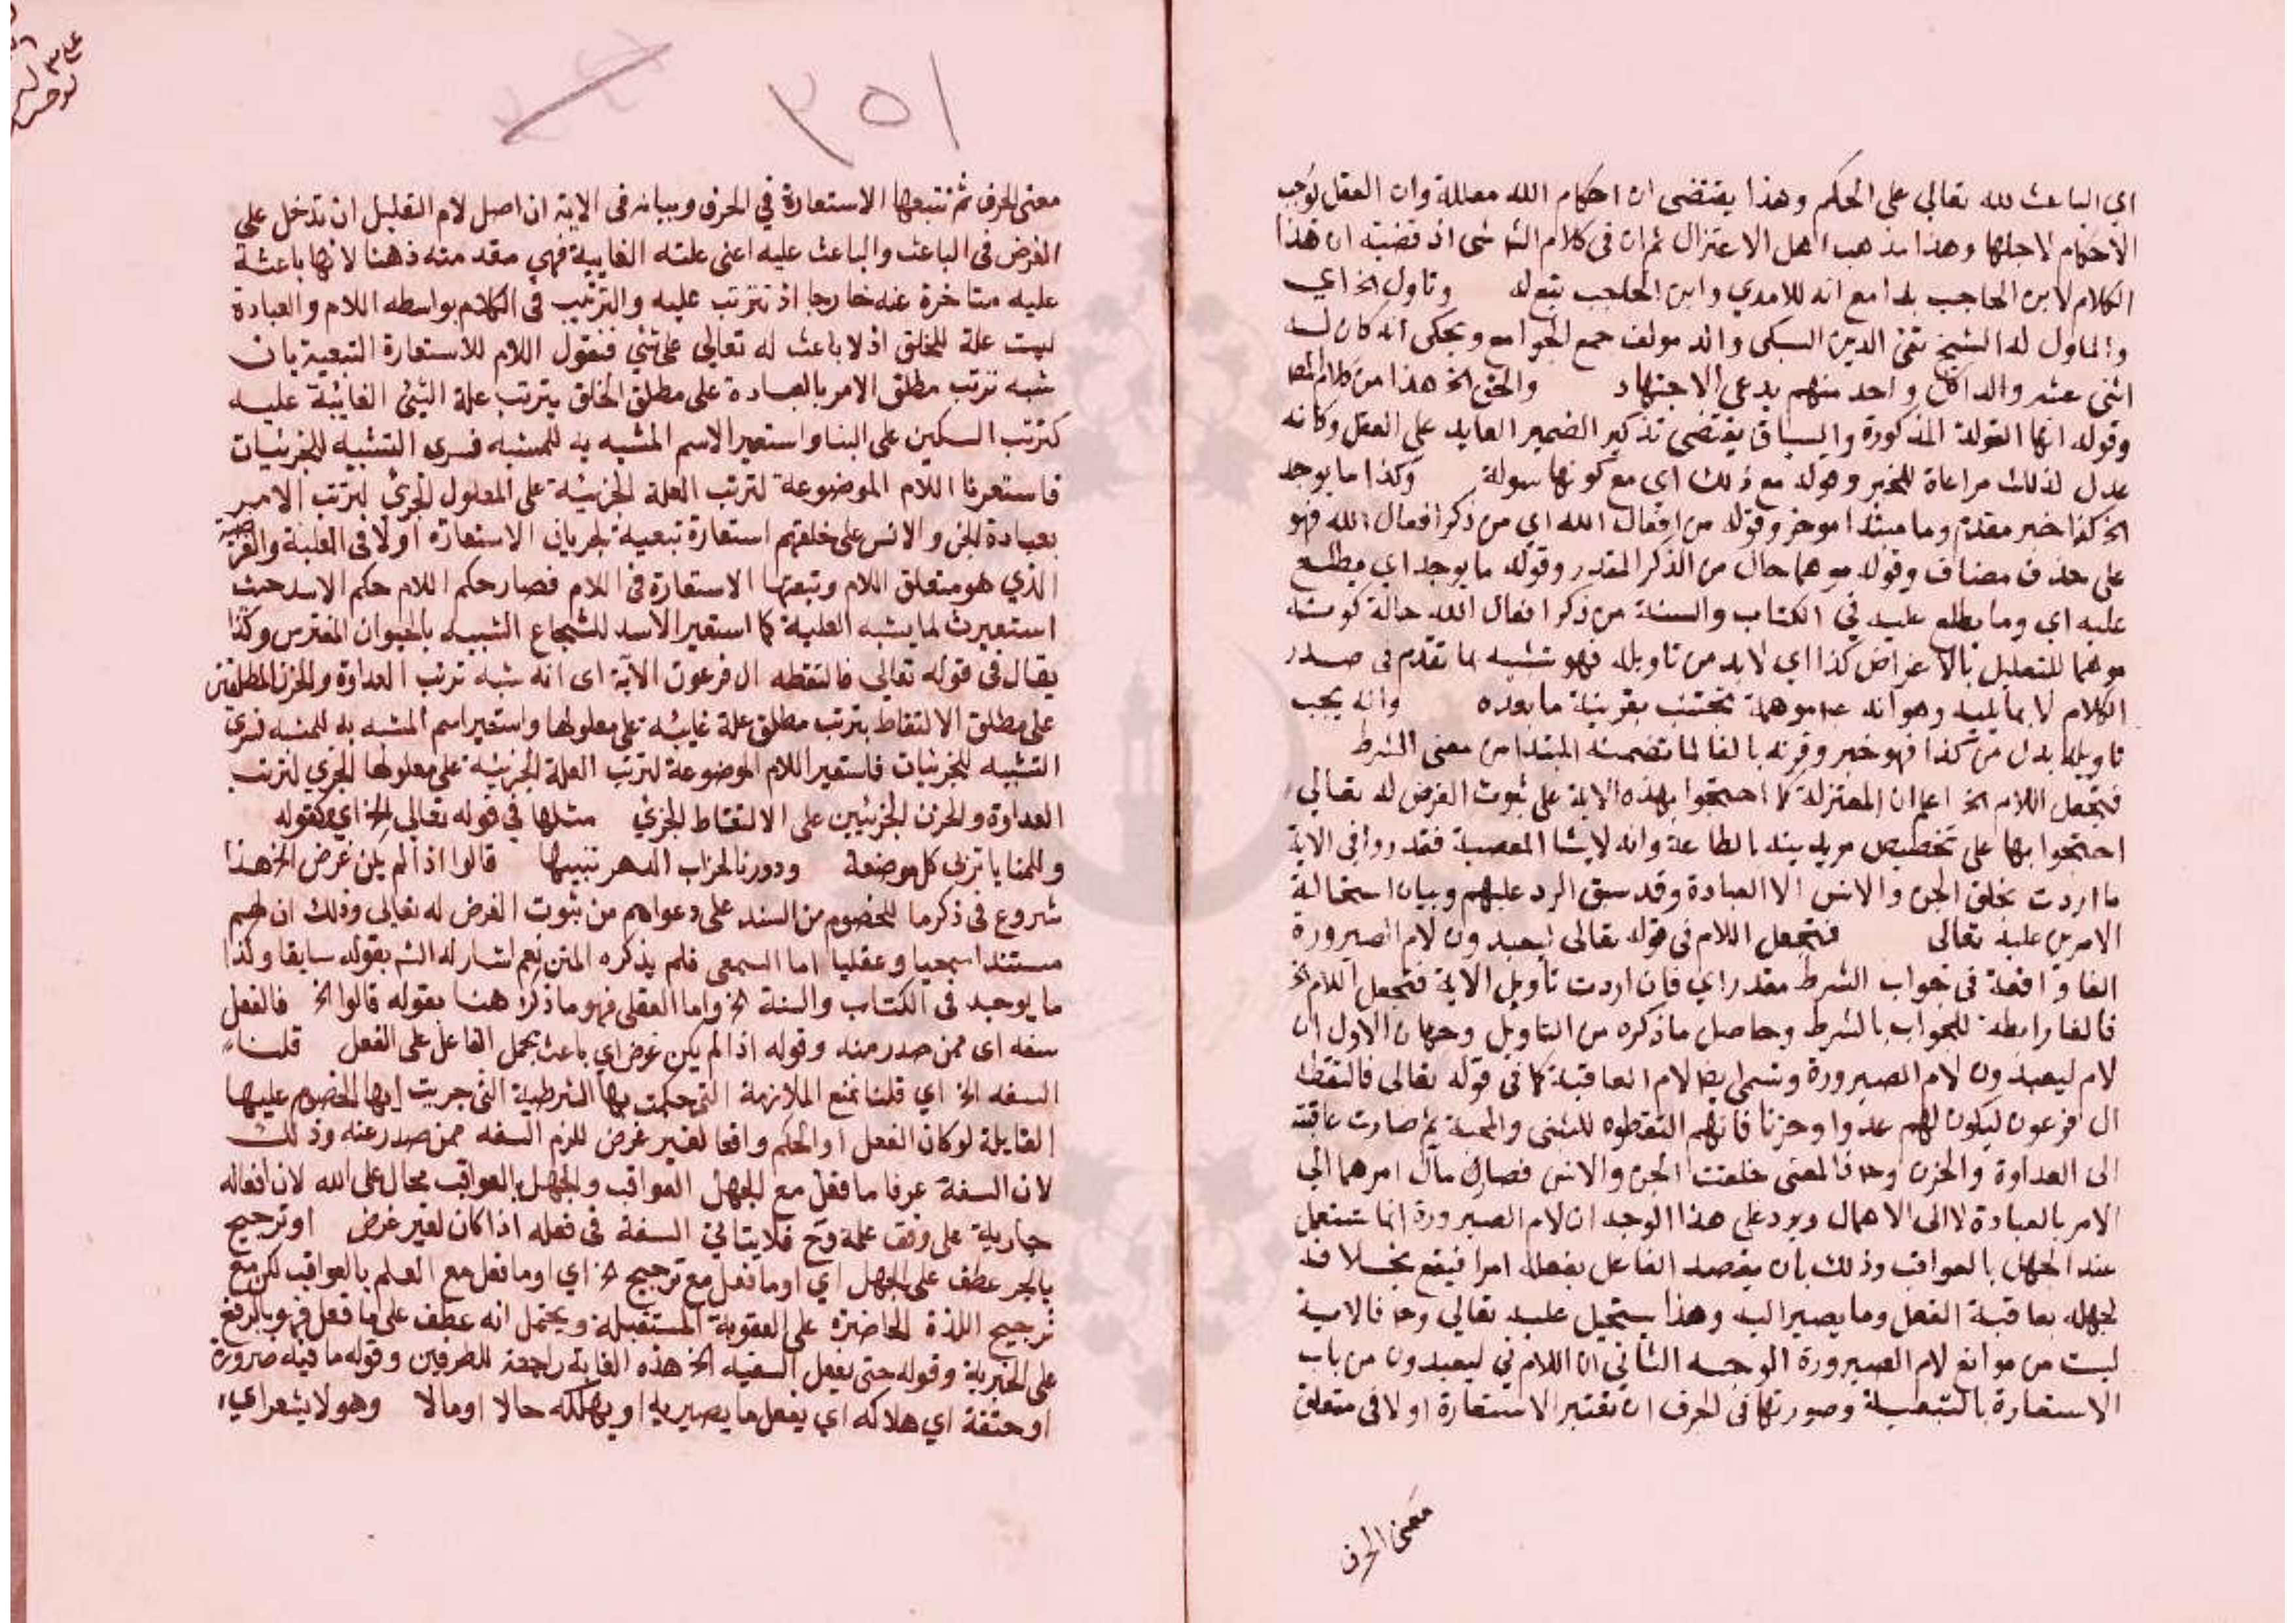 اي الباعث لله تعالي علي الحكم وهذا يقتضى ان احكام الله معللة وان العقل يوجب
الاحكام لاجلها وهذا مذهب اهل الاعتزال ثم ان فى كلام الشا شى اذ قضيته ان هذا
الكلام لابن الحاجب بدا مع انه للامدي وابن الحاجب تبع له وتاول الخ اي
والماول له الشيخ تقى الدين السبكى والد مولف جمع الجوامع ويحكى انه كان له
اثنى عشر والدا كل واحد منهم يدعى الاجتهاد والحق الخ هذا من كلام المص
وقوله انها القولة المذكورة والسياق يقتضى تذكير الضمير العايد على العقل وكانه
عدل لذلك مراعاة للخبر وهوله مع ذلك اي مع كونها سولة وكذا ما يوجد
الخ كذا خبر مقدم وما مبتدا موخر وقوله من افعال الله اي من ذكر افعال الله فهو
على حذف مضاف وقوله موهما حال من الذكر المقدر وقوله ما يوجد اي يطلع
عليه اي وما يطلع عليه في الكتاب والسنة من ذكر افعال الله حالة كونه
موهما للتعليل بالاغراض كذا اي لا بد من تاويله فهو تشبيه بما تقدم فى صدر
الكلام لا بما يليه وهو انه موهمة تجتنب بقرينة ما بعده وانه يجب
تاويله بدل من كذا فهو خبر وقرنه بالفا لما تضمنه المبتدا من معنى الشرط
فتجعل اللام الخ اعلم ان المعتزلة كما احتجوا بهذه الاية على ثبوت الغرض له تعالي
احتجوا بها على تخصيص مريديته بالطاعة وانه لا يشا المعصية فقدروا فى الاية
ما اردت بخلق الجن والانس الا العبادة وقد سبق الرد عليهم وبيان استحالة
الامرين عليه تعالى فتجعل اللام فى قوله تعالى ليعبدون لام الصيرورة
الفا واقعة فى جواب الشرط مقدر اي فان اردت تاويل الاية فتجعل اللام الخ
فالفا رابطة للجواب بالشرط وحاصل ما ذكره من التاويل وجهان الاول ان
لام ليعبدون لام الصيرورة وتسمى ايضا لام العاقبة كما فى قوله تعالى فالتقطه
ال فرعون ليكون لهم عدوا وحزنا فانهم التقطوه للتبنى والمحبة ثم صارت عاقبته
الى العداوة والحزن وح فالمعنى خلقت الجن والانس فصار مآل امرهما الي
الامر بالعبادة لا الى الاهمال ويرد على هذا الوجه ان لام الصيرورة انما تستعمل
عند الجهل بالعواقب وذلك بان يقصد الفاعل بفعله امرا فيقع بخلافه
لجهله بعاقبة الفعل وما يصير اليه وهذا يستحيل عليه تعالي وح فالاية
ليست من مواقع لام الصيرورة الوجه الثاني ان اللام في ليعبدون من باب
الاستعارة بالتبعية وصورتها فى الحرف ان تعتبر الاستعارة اولا فى متعلق
معنى الحرف
٣٥١
معنى الحرف ثم تتبعها الاستعارة في الحرف وبيانه فى الاية ان اصل لام التعليل ان تدخل على
الغرض فى الباعث والباعث عليه اعنى علته الغايية فهي مقدمته ذهنا لانها باعثة
عليه متاخرة عنه خارجا اذ تترتب عليه والترتيب فى الكلام بواسطه اللام والعبادة
ليست علة للخلق اذ لا باعث له تعالي على شي فنقول اللام للاستعارة التبعية بان
شبه ترتب مطلق الامر بالعبادة على مطلق الخلق بترتب علة الشي الغايية عليه
كترتب السكنى على البنا واستعير الاسم المشبه به للمشبه فسرى التشبيه للجزئيات
فاستعرنا اللام الموضوعة لترتب العلة الجزئية على المعلول الجزئي لترتب الامر
بعبادة الجن والانس على خلقهم استعارة تبعية لجريان الاستعارة اولا فى العلية والغرضية
الذي هو متعلق اللام وتبعتها الاستعارة فى اللام فصار حكم اللام حكم الاسد حيث
استعيرت لما يشبه العلية كما استعير الاسد للشجاع الشبيه بالحيوان المفترس وكذا
يقال فى قوله تعالي فالتقطه ال فرعون الآية اى انه شبه ترتب العداوة والحزن المطلقين
على مطلق الالتقاط بترتب مطلق علة غايية على معلولها واستعير اسم المشبه به للمشبه فسرى
التشبيه للجزئيات فاستعير اللام الموضوعة لترتب العلة الجزئية على معلولها الجزي لترتب
العداوة والحزن الجزئيين على الالتقاط الجزي مثلها في قوله تعالي الخ اي وكقوله
وللمنايا تربى كل مرضعة ودورنا لخراب الدهر نبنيها قالوا اذا لم يكن غرض الخ هذا
شروع فى ذكر ما للخصوم من السند على دعواهم من ثبوت الغرض له تعالى وذلك ان لهم
مستندا سمعيا وعقليا اما السمعى فلم يذكره المتن نعم اشار له الش بقوله سابقا وكذا
ما يوجد فى الكتاب والسنة الخ واما العقلى فهو ما ذكره هنا بقوله قالوا الخ فالفعل
سفه اى ممن صدر منه وقوله اذا لم يكن غرض اي باعث يحمل الفاعل على الفعل قلنا
السفه الخ اي قلنا نمنع الملازمة التى حكمت بها الشرطية التى جريت ايها الخصوم عليها
القايلة لو كان الفعل او الحكم واقعا لغير غرض للزم السفه ممن صدر عنه وذلك
لان السفة عرفا ما فعل مع الجهل العواقب والجهل بالعواقب محال على الله لان افعاله
جارية على وفق علمه وح فلا يتاتى السفة فى فعله اذا كان لغير غرض او ترجيح
بالجر عطف على الجهل اي او ما فعل مع ترجيح الخ اي او ما فعل مع العلم بالعواقب لكن مع
ترجيح اللذة الحاضرة على العقوبة المستقبلة ويحتمل انه عطف على ما فعل فهو بالرفع
على الخبرية وقوله حتى يفعل السفيه الخ هذه الغاية راجعة للطرفين وقوله ما فيه ضرورة
او حتفة اي هلاكه اي يفعل ما يصير به او يهلكه حالا او مالا وهو لا يشعر اي